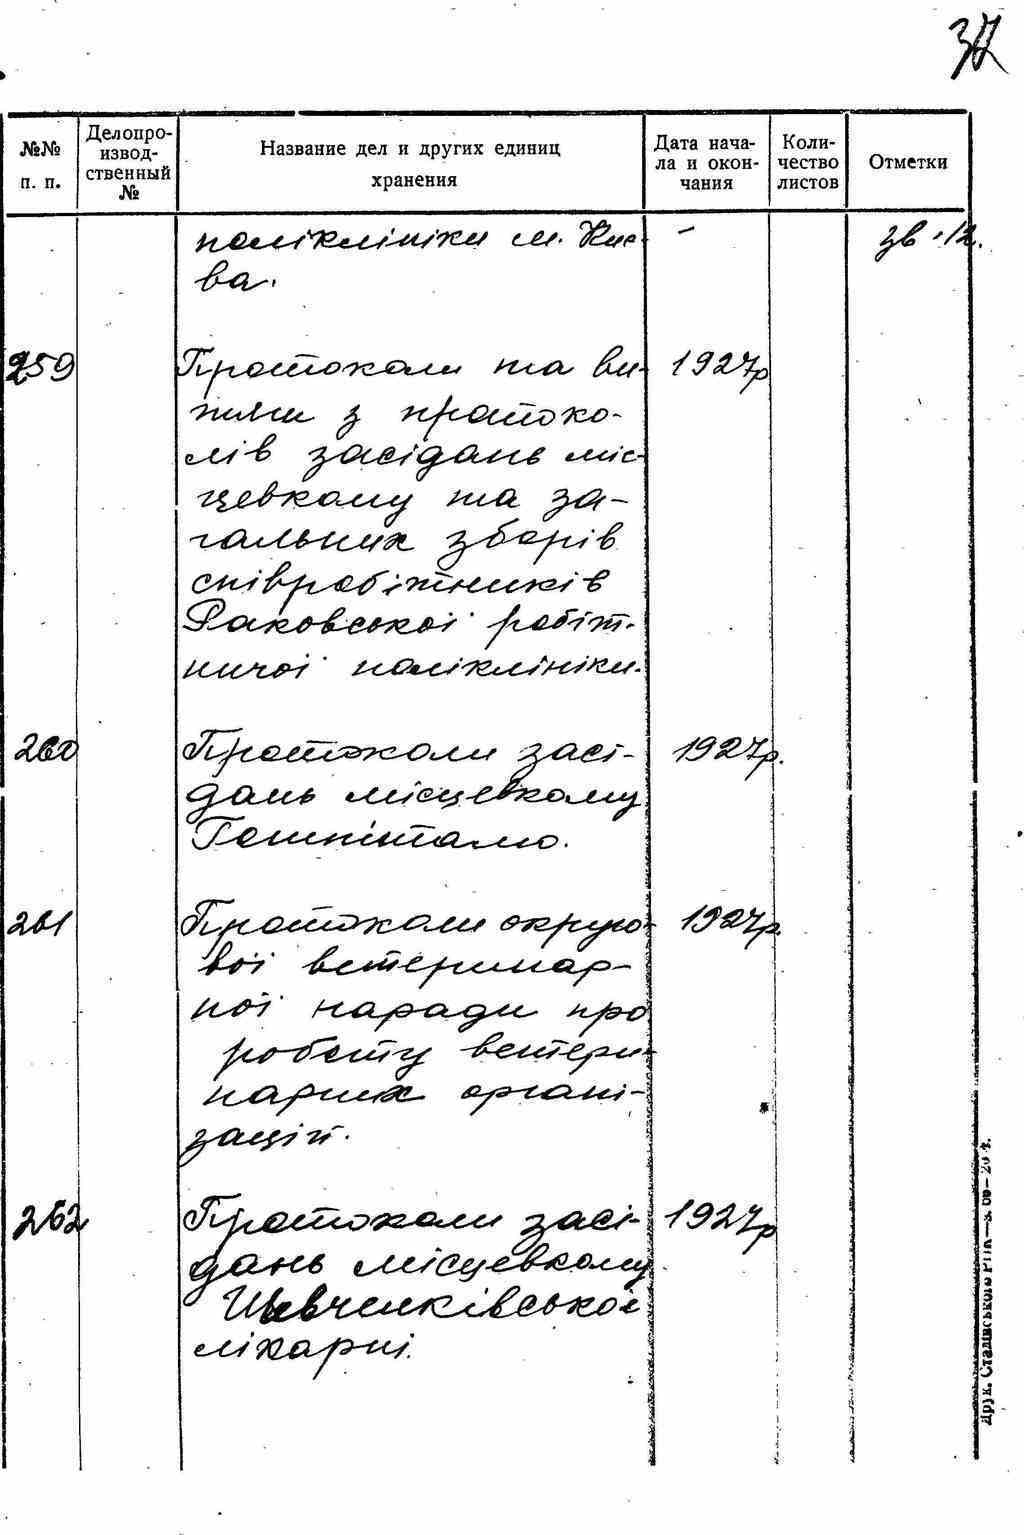 37
№№ п. п.
Делопро-извод-ственный №
Название дел и других единиц хранения
Дата нача-ла и окон-чания
Коли-чество листов
Отметки
поліклініки м. Киє- -
ва.
259 Протоколи та ви- 1927р
писи з протоко-
лів засідань міс-
цевкому та за-
гальних зборів
співробітників
Раковської робіт-
ничої поліклініки.
260 Протоколи засі- 1927р.
дань місцевкому
Гошпіталю.
261 Протоколи округо- 1927р.
вої ветеринар-
ної наради про
роботу ветери-
нарних органі-
зацій.
262 Протоколи засі- 1927р
дань місцевкому
Шевченківської
лікарні.
Друк. Сталінського